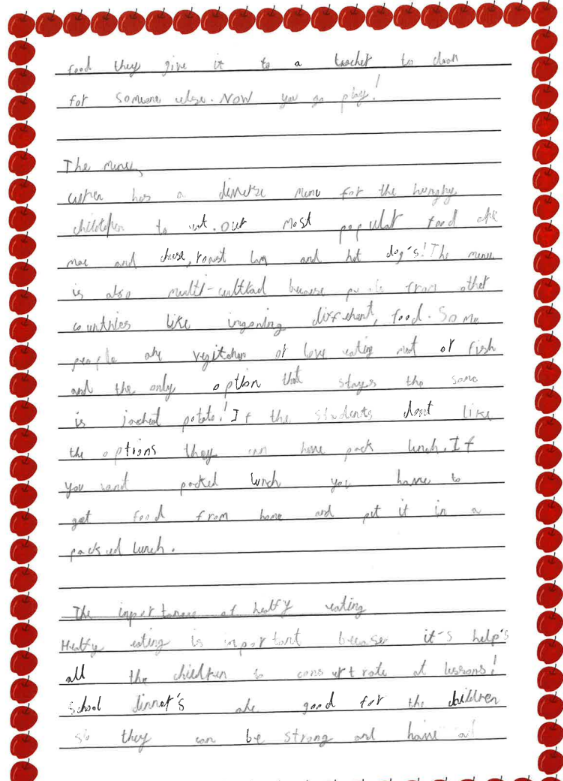 food they give it to a teacher to clean
for someone else. NOW you go play!
The menu,
has a diverse menu for the hungry
children to eat. our most popular food are
mac and cheese, roast and hot dog's! The menu
is also multi-cultral because people from other
countries like ingoning diffrhent, food. Some
people are vegitarien or love eating meat or fish
and the only option that stays the same
is jacket potato! If the students dosnt like
the options they can have pack lunch. If
you want packed lunch you have to
get food from home and put it in a
packed lunch.
The inportance of healty eating
Healty eating is important because it-s help's
all the children to at lessons!
school dinner's are good for the children
so they can be strong and have a